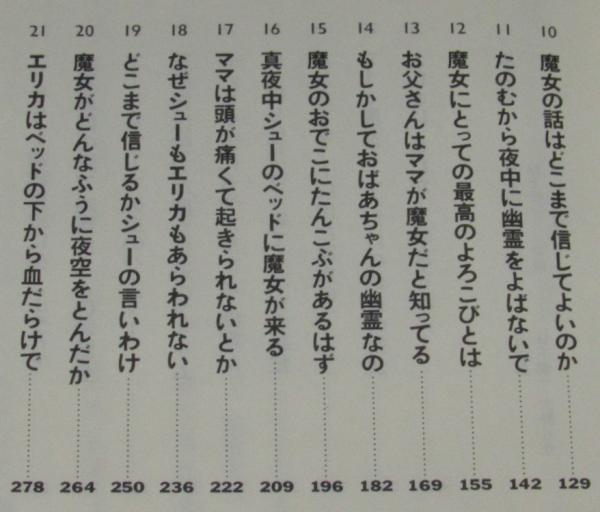 10 魔女の話はどこまで信じてよいのか……………129
11 たのむから夜中に幽霊をよばないで……………142
12 魔女にとっての最高のよろこびとは……………155
13 お父さんはママが魔女だと知ってる……………169
14 もしかしておばあちゃんの幽霊なの……………182
15 魔女のおでこにたんこぶがあるはず……………196
16 真夜中シューのベッドに魔女が来る……………209
17 ママは頭が痛くて起きられないとか……………222
18 なぜシューもエリカもあらわれない……………236
19 どこまで信じるかシューの言いわけ……………250
20 魔女がどんなふうに夜空をとんだか……………264
21 エリカはベッドの下から血だらけで……………278